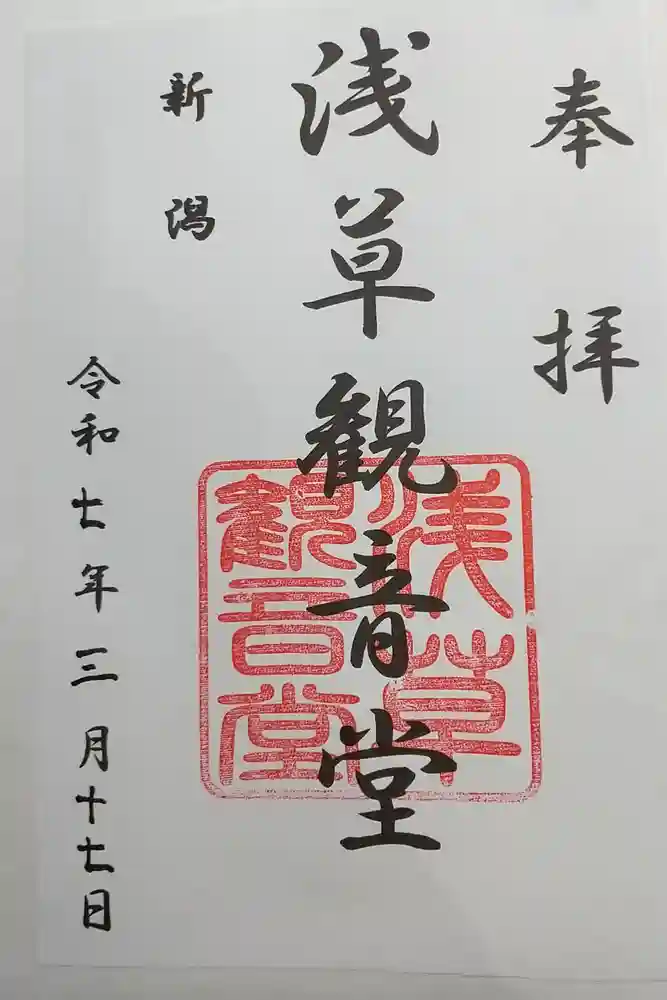 奉拝
浅草観音堂
浅草
観音堂
新潟
令和七年三月十七日